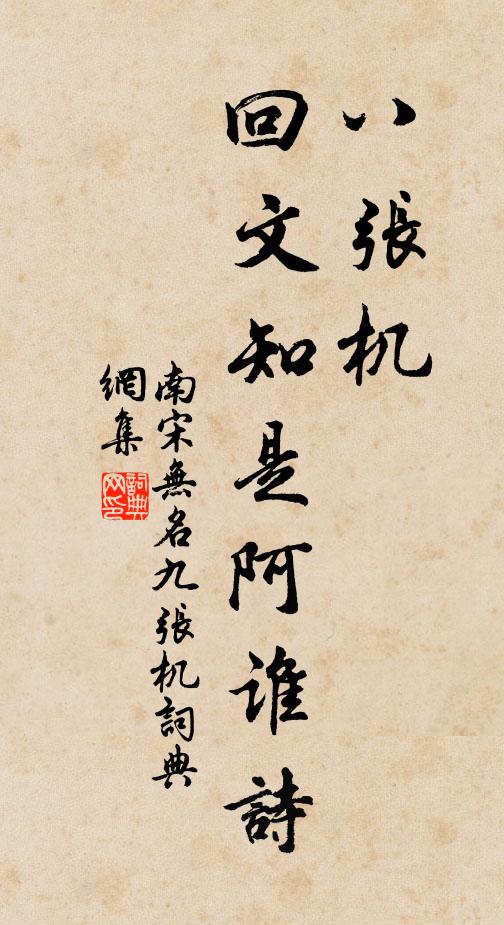 八張机
回文知是阿谁詩
南宋無名九張机詞典
網集
詞典
网印